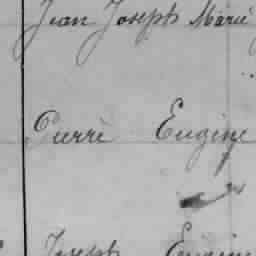 Jean Joseph Marie
Pierre Eugène
Joseph Eugène